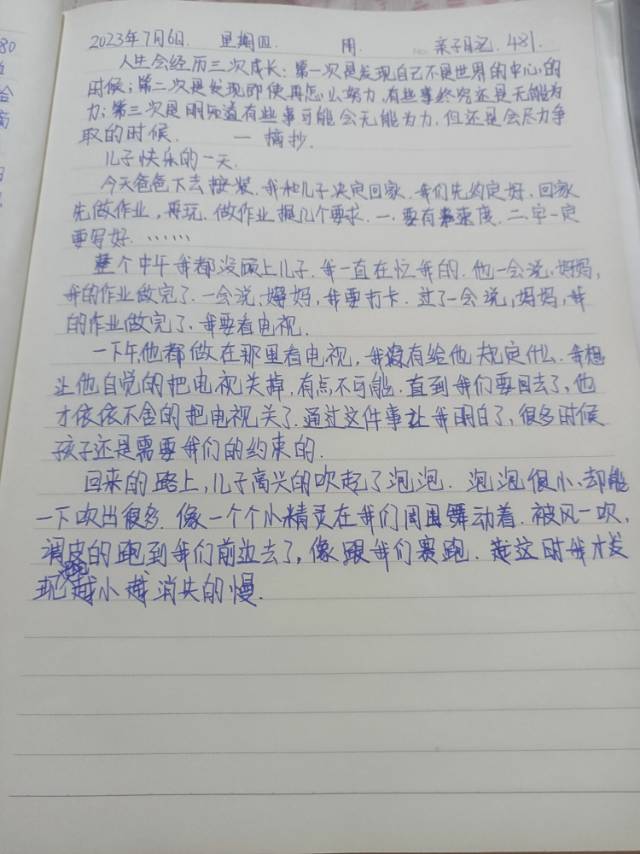 2023年7月6日. 星期四. 阴. 亲子日记. 481.
人生会经历三次成长: 第一次是发现自己不是世界的中心的
时候; 第二次是发现即使再怎么努力, 有些事终究还是无能为
力; 第三次是明知道有些事可能会无能为力, 但还是会尽力争
取的时候. — 摘抄.
儿子快乐的一天.
今天爸爸下去接货. 我和儿子决定回家. 我们先约定好, 回家
先做作业, 再玩. 做作业提几个要求. 一. 要有速度. 二. 字一定
要写好. ……
整个中午我都没顾上儿子. 我一直在忙我的. 他一会说, 妈妈,
我的作业做完了. 一会说, 妈妈, 我要打卡. 过了一会说, 妈妈, 我
的作业做完了. 我要看电视.
一下午他都做在那里看电视, 我没有给他规定什么. 我想
让他自觉的把电视关掉, 有点不可能. 直到我们要回去了, 他
才依依不舍的把电视关了. 通过这件事让我明白了, 很多时候
孩子还是需要我们的约束的.
回来的路上, 儿子高兴的吹起了泡泡. 泡泡很小, 却能
一下吹出很多. 像一个个小精灵在我们周围舞动着. 被风一吹,
调皮的跑到我们前边去了, 像跟我们赛跑. 这时我才发
现越小越消失的慢.